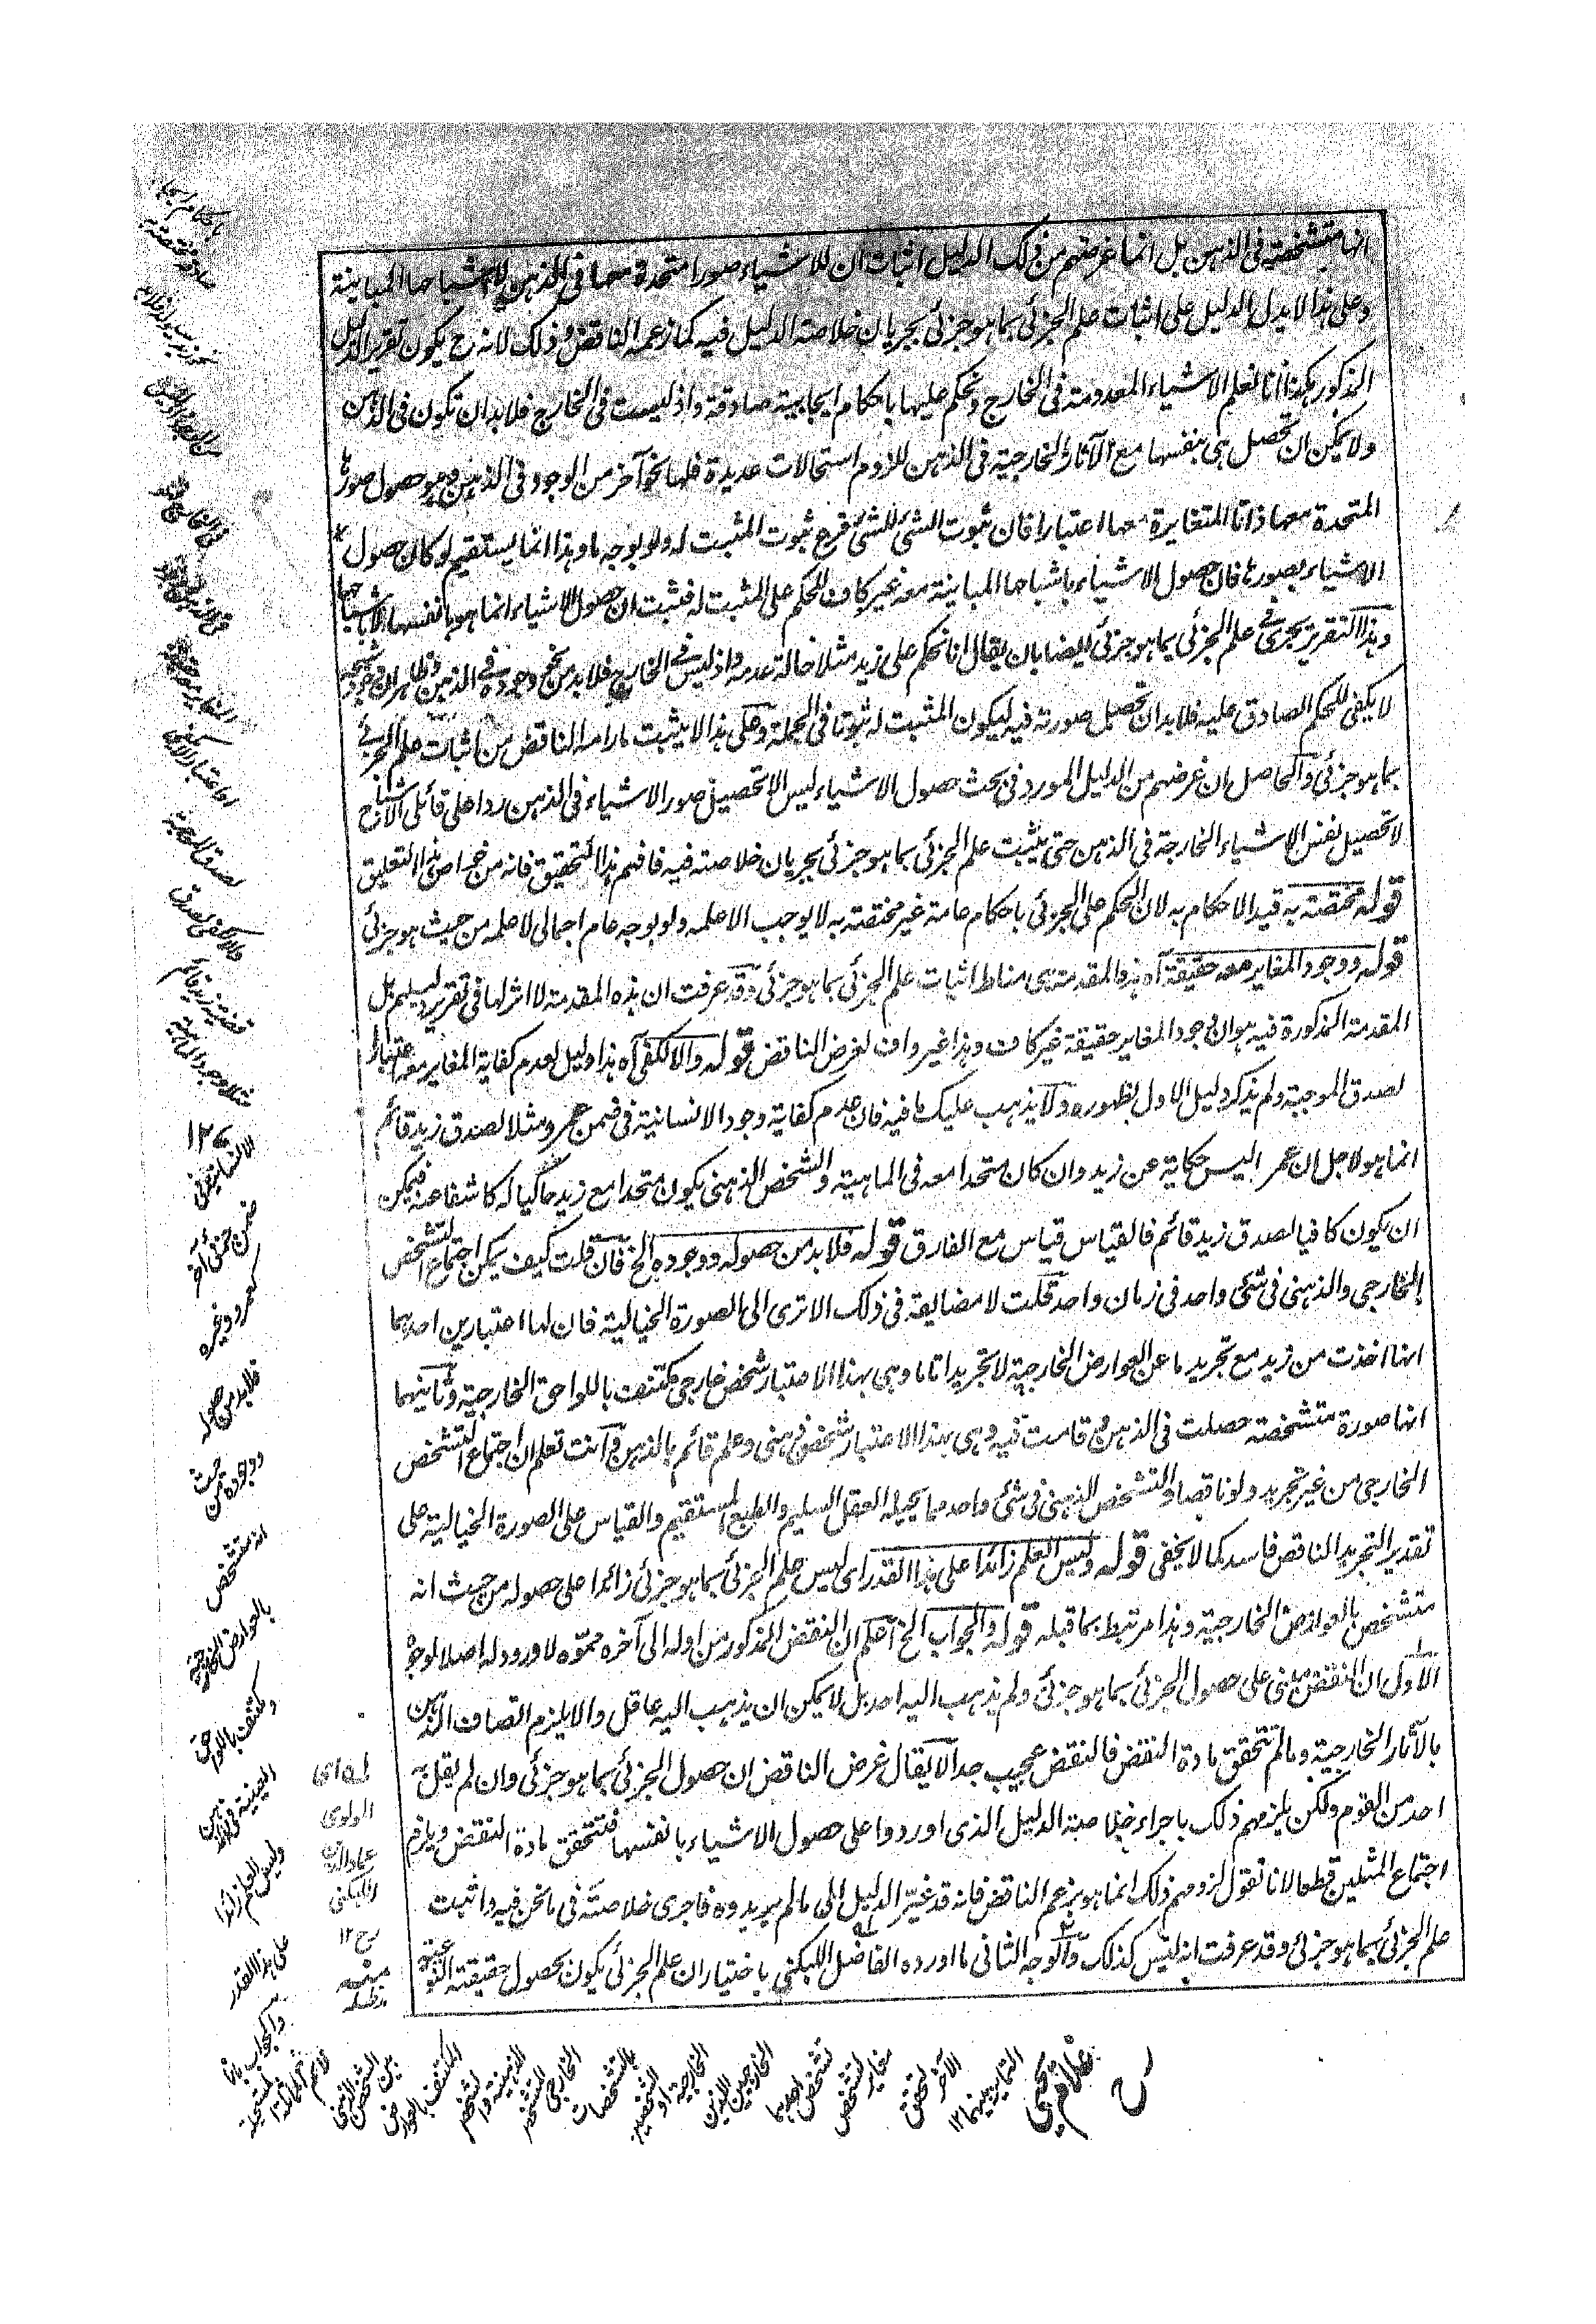 انها متشخصة فى الذهن بل انما غرضهم من ذلك الدليل اثبات ان للاشياء صورا متحدة معها فى الذهن لا اشباحها المباينة
وعلى هذا لا يدل الدليل على اثبات علم الجزئى بما هو جزئى بجريان خلاصة الدليل فيه كما زعمه الناقض وذلك لانه ح يكون تقرير الدليل
المذكور هكذا انا نعلم الاشياء المعدومة فى الخارج ونحكم عليها باحكام ايجابية صادقة واذ ليست فى الخارج فلا بد ان تكون فى الذهن
ولا يمكن ان تحصل هى بنفسها مع الآثار الخارجية فى الذهن للزوم استحالات عديدة فلها نحو آخر من الوجود فى الذهن وهو حصول صورها
المتحدة معها ذاتا المتغايرة معها اعتبارا فان ثبوت الشئ للشئ فرع ثبوت المثبت له ولو بوجه ما وهذا انما يستقيم لو كان حصول
الاشياء بصورها فان حصول الاشياء باشباحها المباينة معه غير كاف للحكم على المثبت له فثبت ان حصول الاشياء انما هو بانفسها لا باشباحها
وهذا التقرير يجرى فى علم الجزئى بما هو جزئى ايضا بان يقال انا نحكم على زيد مثلا حالة عدمه واذ ليس فى الخارج فلا بد من نحو وجوده فى الذهن وظاهر ان وجود شبحه
لا يكفى للحكم الصادق عليه فلا بد ان تحصل صورته فيه ليكون المثبت له ثبوتا فى الجملة وعلى هذا لا يثبت ما رامه الناقض من اثبات علم الجزئى
بما هو جزئى والحاصل ان غرضهم من الدليل المورد فى بحث حصول الاشياء ليس الا تحصيل صور الاشياء فى الذهن ردا على قائلى الاشباح
لا تحصيل نفس الاشياء الخارجة فى الذهن حتى يثبت علم الجزئى بما هو جزئى بجريان خلاصته فيه فافهم هذا التحقيق فانه من خواص هذا التعليق
قوله مختصة به قيد الاحكام به لان الحكم على الجزئى باحكام عامة غير مختصة به لا يوجب الا علمه ولو بوجه عام اجمالى لا علمه من حيث هو جزئى
قوله ووجود المغاير معه حقيقة آه هذه المقدمة هى مناط اثبات علم الجزئى بما هو جزئى وقد عرفت ان هذه المقدمة لا اثر لها فى تقرير دليلهم بل
المقدمة المذكورة فيه هو ان وجود المغاير حقيقة غير كاف وهذا غير واف لغرض الناقض قوله والا لكفى آه هذا دليل لعدم كفاية المغاير معه اعتبارا
لصدق الموجبة ولم يذكر دليل الاول لظهوره ولا يذهب عليك ما فيه فان عدم كفاية وجود الانسانية فى ضمن عمرو مثلا لصدق زيد قائم
انما هو لاجل ان عمرا ليس حكاية عن زيد وان كان متحدا معه فى الماهية والشخص الذهنى يكون متحدا مع زيد حاكيا له كاشفا عنه فيمكن
ان يكون كافيا لصدق زيد قائم فالقياس قياس مع الفارق قوله فلا بد من حصوله ووجوده الخ فان قلت كيف يمكن اجتماع التشخص
الخارجى والذهنى فى شئ واحد فى زمان واحد قلت لا مضايقة فى ذلك الا ترى الى الصورة الخيالية فان لها اعتبارين احدهما
انها اخذت من زيد مع تجريد ما عن العوارض الخارجية لا تجريدا تاما وهى بهذا الاعتبار شخص خارجى مكتنف باللواحق الخارجية وثانيهما
انها صورة متشخصة حصلت فى الذهن وقامت فيه وهى بهذا الاعتبار شخص ذهنى وعلم قائم بالذهن وانت تعلم ان اجتماع التشخص
الخارجى من غير تجريد ولو ناقصا والتشخص الذهنى فى شئ واحد مما يحيله العقل السليم والطبع المستقيم والقياس على الصورة الخيالية على
تقدير التجريد الناقص فاسد كما لا يخفى قوله وليس العلم زائدا على هذا القدر اى ليس علم الجزئى بما هو جزئى زائدا على حصوله من حيث انه
متشخص بالعوارض الخارجية وهذا مرتبط بما قبله قوله والجواب الخ اعلم ان النقض المذكور من اوله الى آخره مموه لا ورود له اصلا لوجوه
الاول ان النقض مبنى على حصول الجزئى بما هو جزئى ولم يذهب اليه احد بل لا يمكن ان يذهب اليه عاقل والا يلزم اتصاف الذهن
بالآثار الخارجية وما لم تتحقق مادة النقض فالنقض عجيب جدا لا يقال غرض الناقض ان حصول الجزئى بما هو جزئى وان لم يقل به
احد من القوم ولكن يلزمهم ذلك باجراء خلاصة الدليل الذى اوردوا على حصول الاشياء بانفسها فتتحقق مادة النقض ويلزم
اجتماع المثلين قطعا لانا نقول لزومهم ذلك انما هو بزعم الناقض فانه قد غيّر الدليل الى ما لم يريدوه فاجرى خلاصته فى ما نحن فيه واثبت
علم الجزئى بما هو جزئى وقد عرفت انه ليس كذلك والوجه الثانى ما اورده الفاضل اللبكنى باختيار ان علم الجزئى يكون بحصول حقيقته النوعية
باحكام ايجابية
صادقة مختصة به
لصدق الموجبة
والا لكفى لصدق
قضية زيد قائم
مثلا وجود الماهية
١٢
الانسانية فى
ضمن شخص آخر
كعمرو وغيره
فلا بد من حصوله
ووجوده من حيث
انه متشخص
بالعوارض الخارجية
ومكتنف باللواحق
المعينة فى الذهن
وليس العلم زائدا
على هذا القدر
والجواب بانا
له اى
المولوى
عماد الدين
اللبكنى
رح ١٢
منه
مدظله
بين الشخص الذهنى
المكتنف بالعوارض
الذهنية والشخص
الخارجى المتشخص
بالتشخصات
الخارجية او
الخارجيين اللذين
تشخص احدهما
مغاير لتشخص
الآخر لتحقق
التمايز بينهما ١٢
غلام يحيى
رح